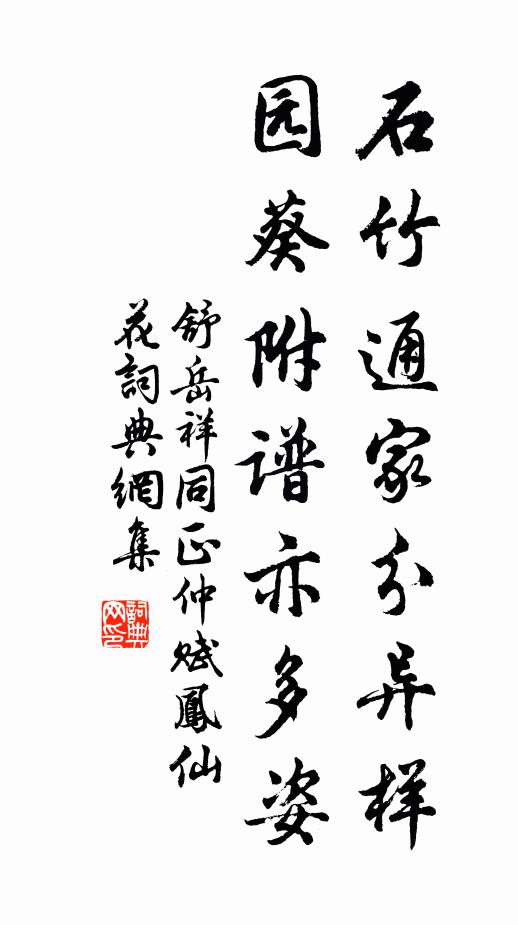 石竹通家分异样
园葵附谱亦多姿
舒岳祥同正仲赋鳳仙
花詞典網集
詞典
网印